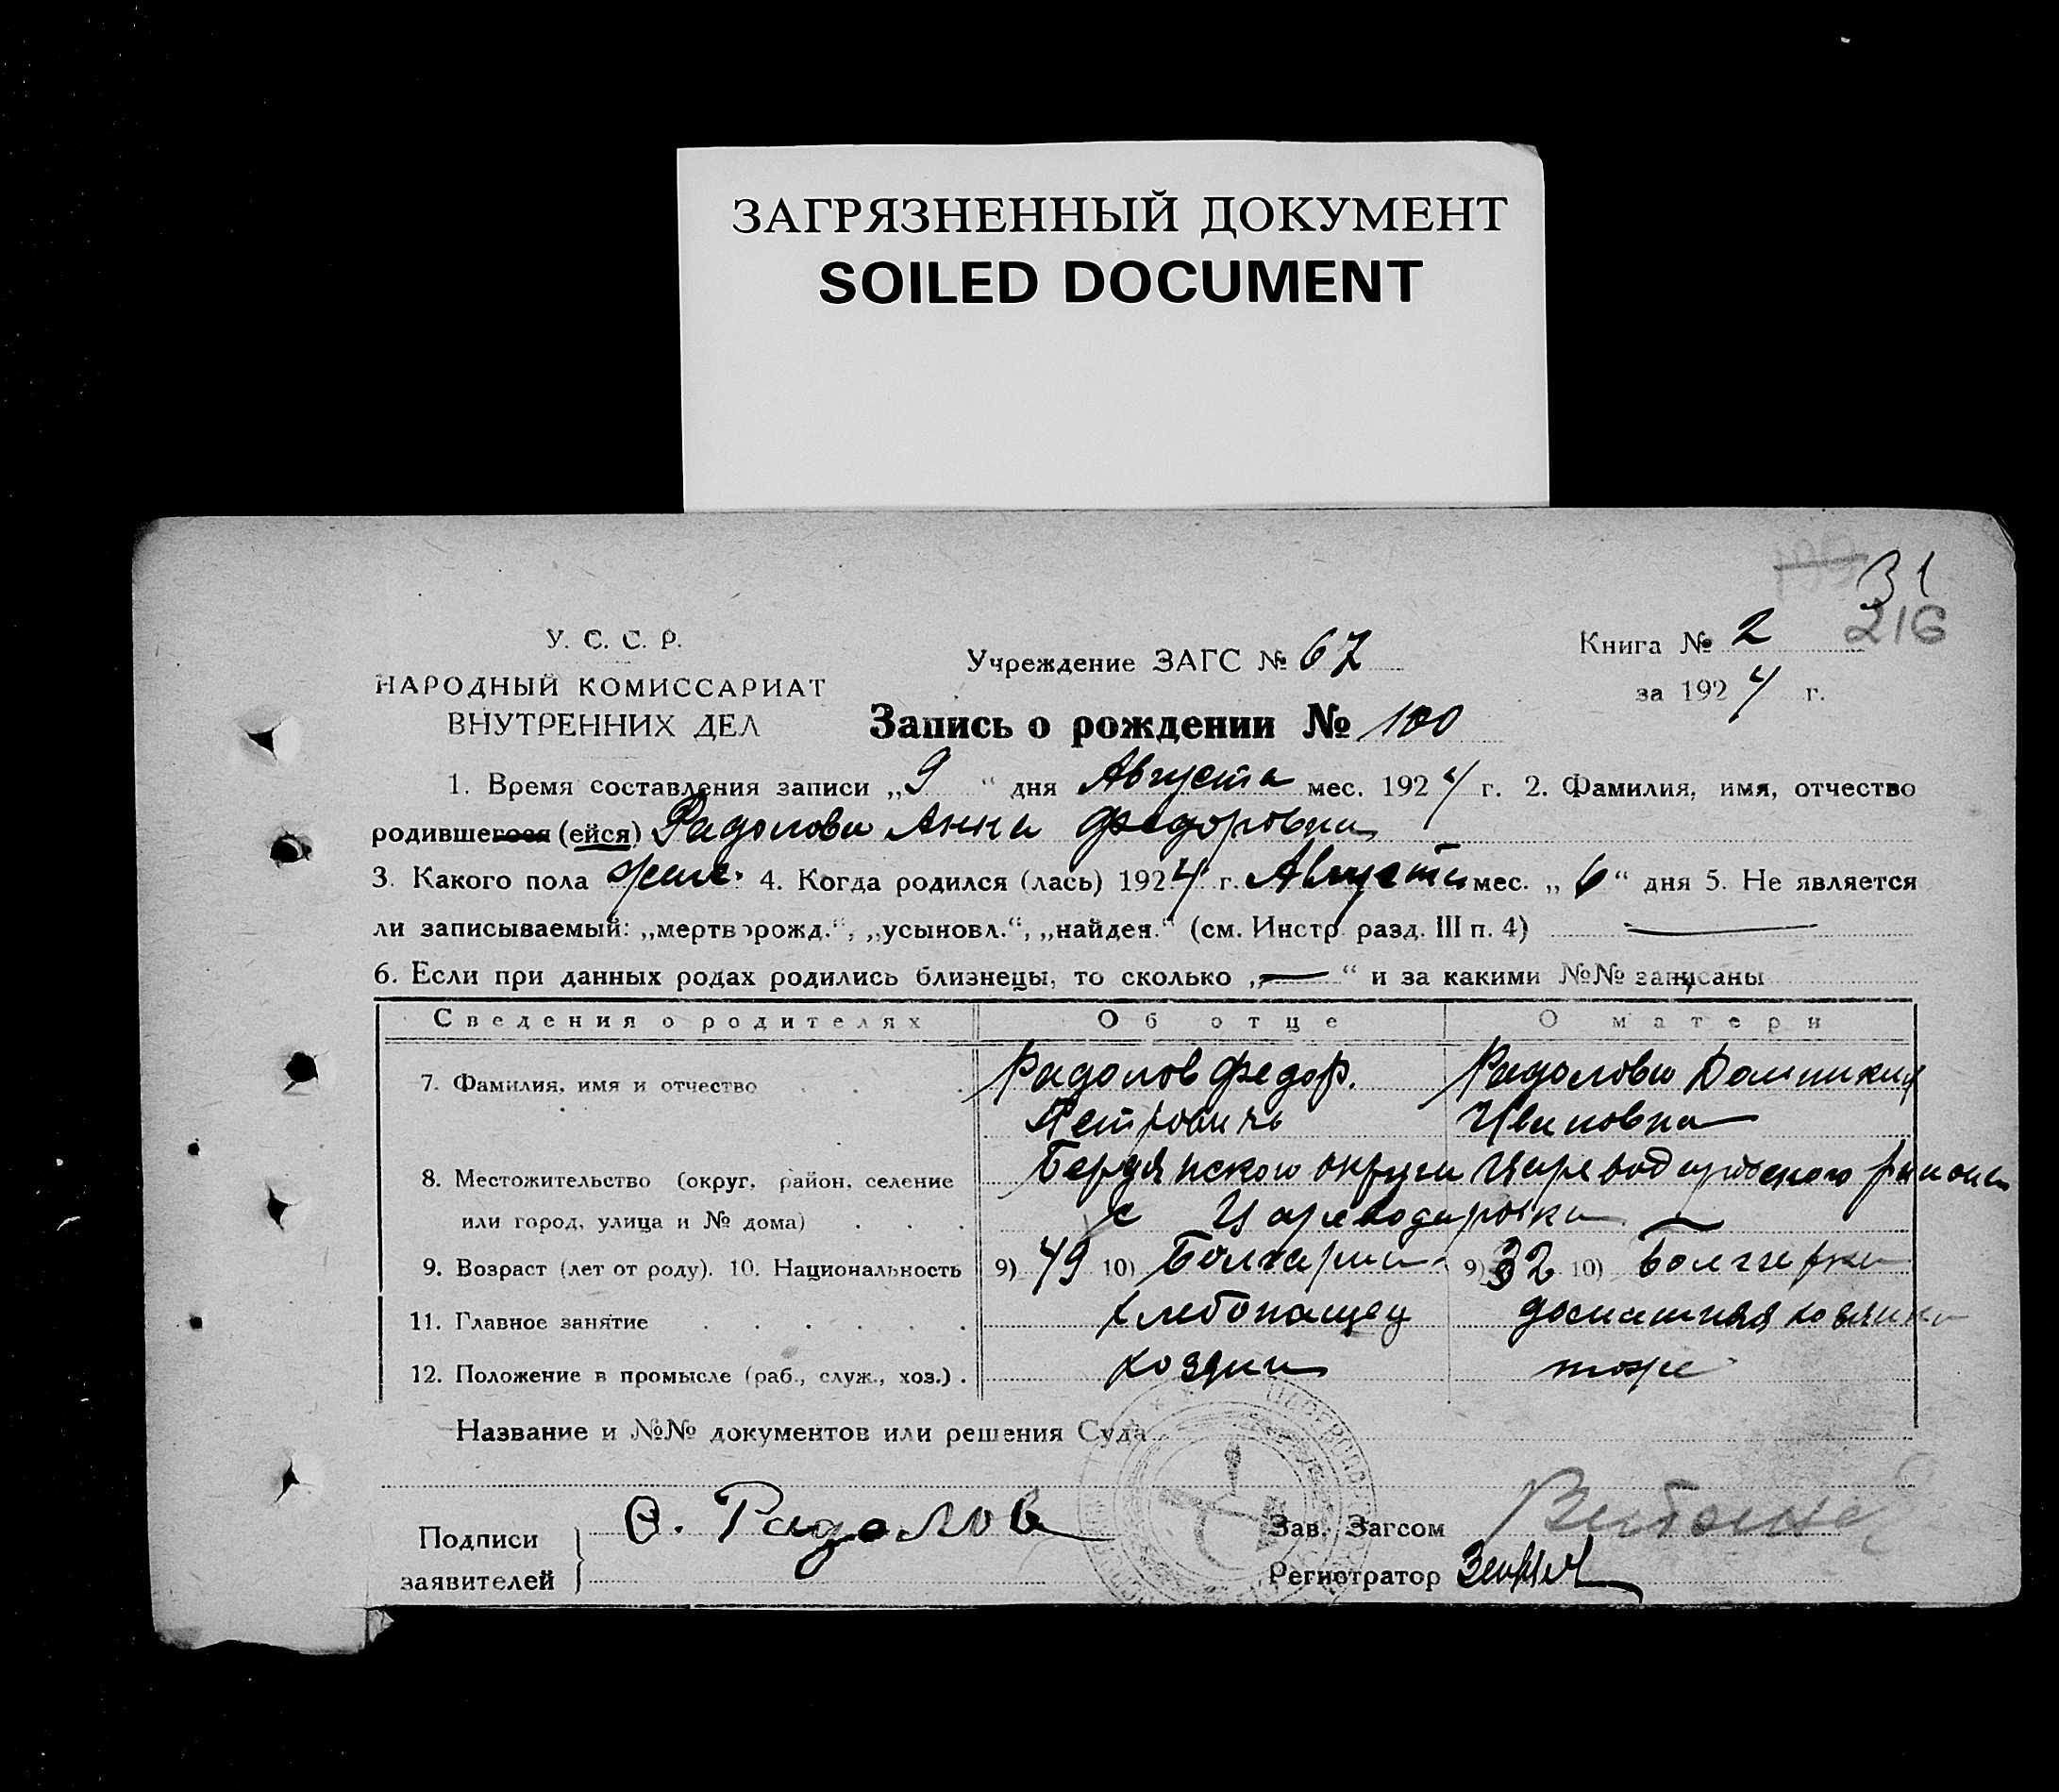 ЗАГРЯЗНЕННЫЙ ДОКУМЕНТ
SOILED DOCUMENT
31
216
У. С. С. Р.
НАРОДНЫЙ КОМИССАРИАТ
ВНУТРЕННИХ ДЕЛ
Учреждение ЗАГС № 67
Книга № 2
за 1924 г.
Запись о рождении № 100
1. Время составления записи „9“ дня Августа мес. 1924 г. 2. Фамилия, имя, отчество
родившегося (ейся) Радолова Анна Федоровна
3. Какого пола жен. 4. Когда родился (лась) 1924 г. Августа мес. „6“ дня 5. Не является
ли записываемый: „мертворожд.“, „усыновл.“, „найден.“ (см. Инстр. разд. III п. 4) —
6. Если при данных родах родились близнецы, то сколько „—“ и за какими №№ записаны
Сведения о родителях Об отце О матери
7. Фамилия, имя и отчество Радолов Федор. Радолова Домникия
Петровичь Ивановна
8. Местожительство (округ, район, селение Бердянского округа Цареводаровского района
или город, улица и № дома) с Цареводаровка
9. Возраст (лет от роду). 10. Национальность 9) 49 10) Болгарин 9) 32 10) Болгарка
11. Главное занятие хлебопашец домашняя хозяйка
12. Положение в промысле (раб., служ., хоз.) хозяин тоже
Название и №№ документов или решения Суда
Подписи заявителей Ѳ. Радолов
Зав. Загсом
Регистратор